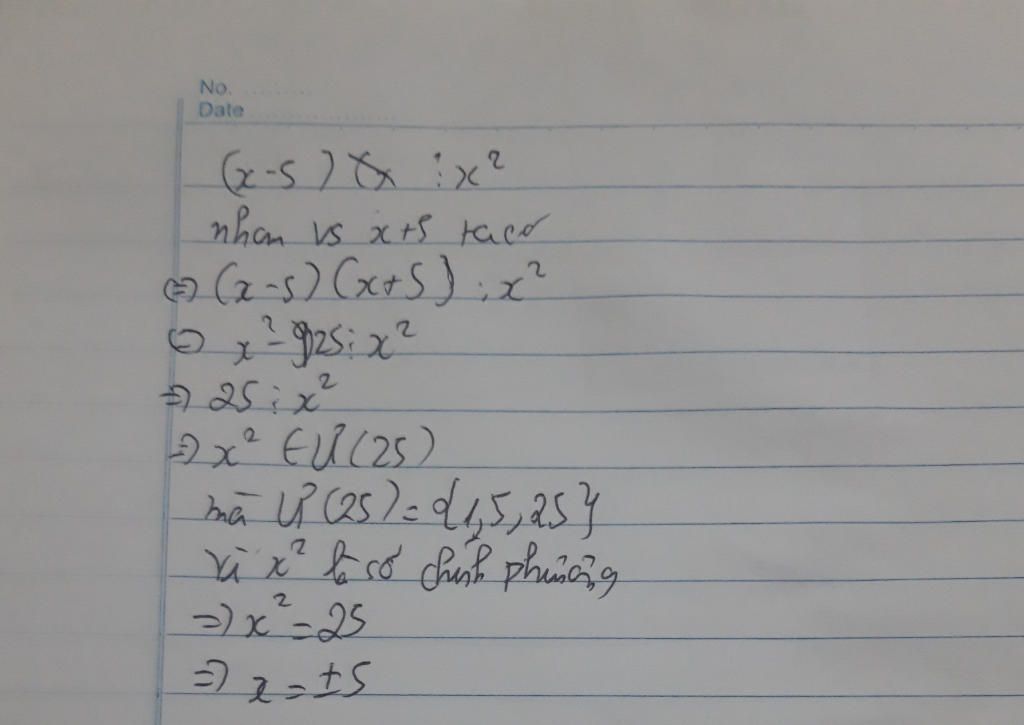 No.
Date
(x-5) ⋮ x²
nhan vs x+5 ta có
(=) (x-5)(x+5) ⋮ x²
(=) x² - 25 ⋮ x²
=) 25 ⋮ x²
=) x² ∈ Ư(25)
mà Ư(25) = {1,5,25}
Vì x² là số chính phương
=) x² = 25
=) x = ±5